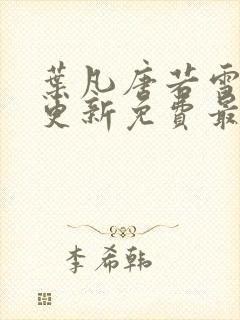 葉凡唐若雪
更新免費最
李希韩